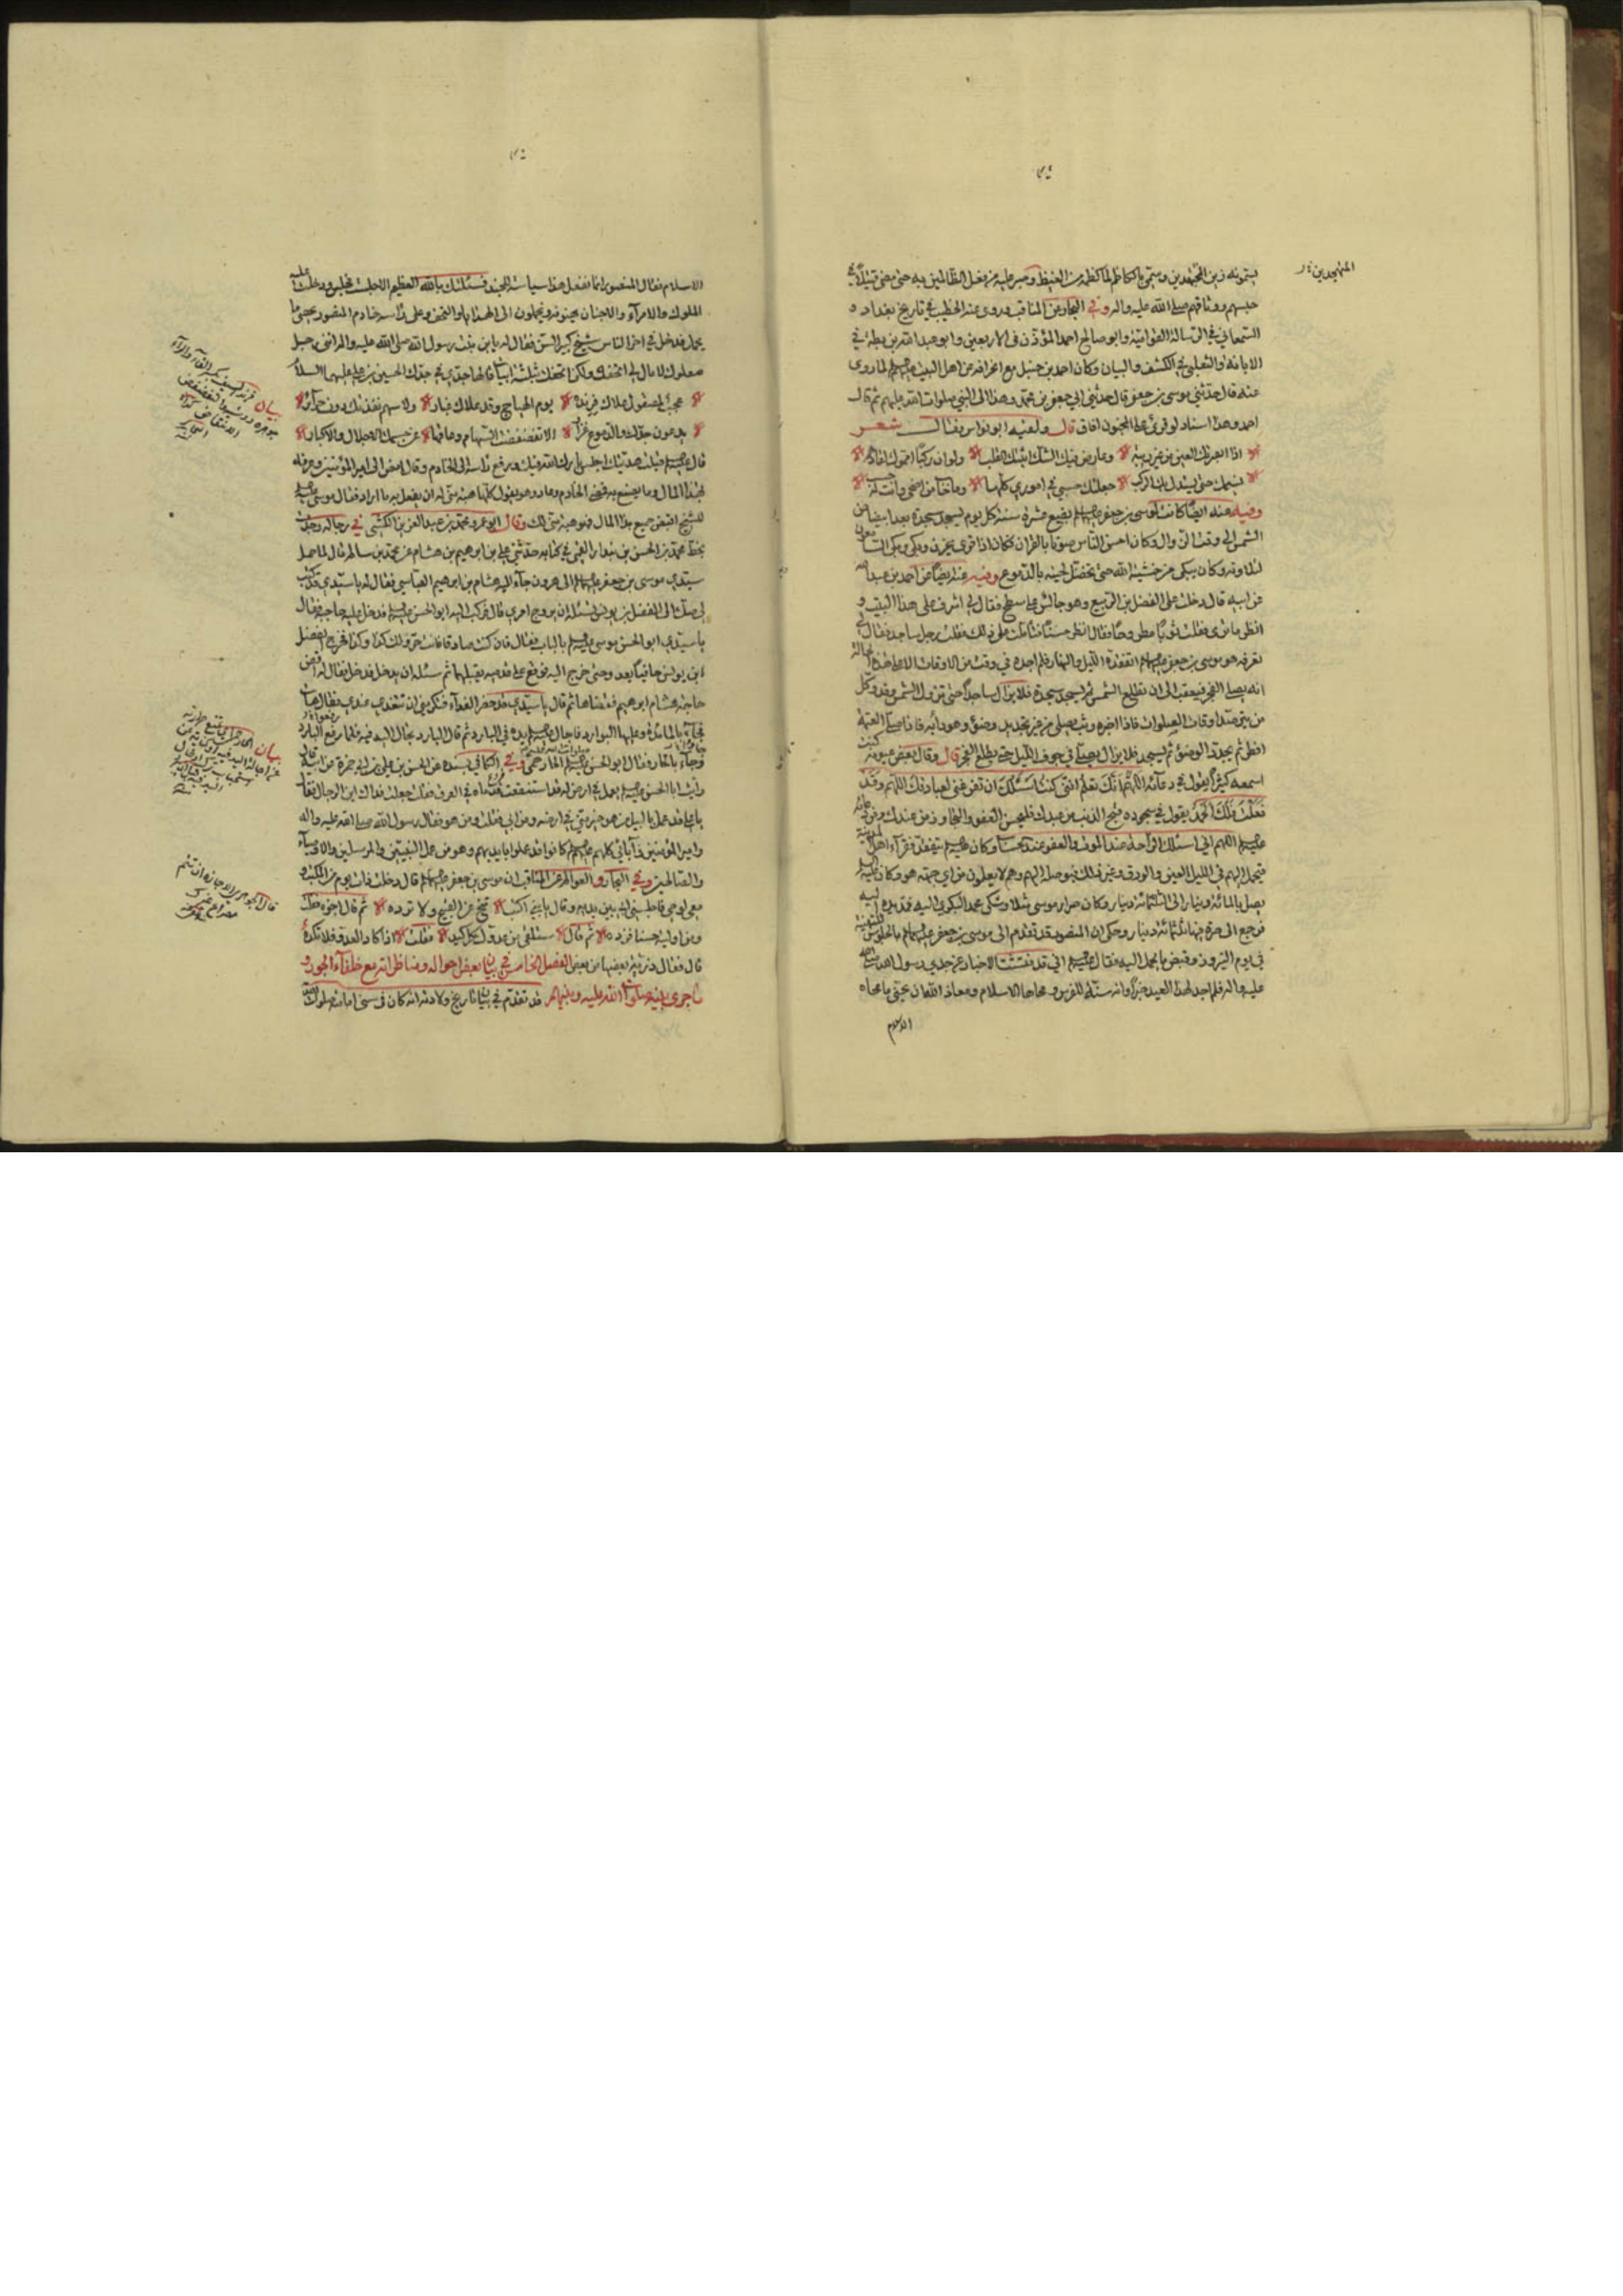 يسمونه زين المجتهدين وسمي بالكاظم لما كظمه من الغيظ وصبر عليه من فعل الظالمين به حتى مضى قتيلا في
حبسهم ووثاقهم صلى الله عليه واله وفي البحار عن المناقب وروى عنه الخطيب في تاريخ بغداد و
السمعاني في الرسالة القوامية وابو صالح احمد المؤذن في الاربعين وابو عبد الله بن بطة في
الابانة والثعلبي في الكشف والبيان وكان احمد بن حنبل مع انحرافه عن اهل البيت عليهم السلام لما روى
عنه قال حدثني موسى بن جعفر قال حدثني ابي جعفر بن محمد وهكذا الى النبي صلوات الله عليهم ثم قال
احمد وهذا اسناد لو قرئ على المجنون افاق قال ولقيه ابو نواس فقال شعر
اذا ابصرتك العين من غير ريبة وعارض فيك الشك اثبتك القلب ولو ان ركبا امموك لقادهم
نسيمك حتى يستدل بك الركب جعلتك حسبي في اموري كلها وما خاب من اضحى وانت له حسب
وفيه عنه ايضا كانت لموسى بن جعفر عليهما السلام بضع عشرة سنة كل يوم يسجد سجدة بعد ابيضاض
الشمس الى وقت الزوال وكان احسن الناس صوتا بالقران فكان اذا قرئ يحزن وبكى وبكى السامعون
لتلاوته وكان يبكي من خشية الله حتى تخضل لحيته بالدموع وفيه عنه ايضا عن احمد بن عبد الله
عن ابيه قال دخلت على الفضل بن الربيع وهو جالس على سطح فقال لي اشرف على هذا البيت و
انظر ما ترى فقلت ثوبا مطروحا فقال انظر حسنا فتاملت فقلت رجل ساجد فقال لي
تعرفه هو موسى بن جعفر عليهما السلام اتفقده الليل والنهار فلم اجده في وقت من الاوقات الا على هذه الحالة
انه يصلي الفجر فيعقب الى ان تطلع الشمس ثم يسجد سجدة فلا يزال ساجدا حتى تزول الشمس وقد وكل
من يترصد اوقات الصلوات فاذا اخبره وثب يصلي من غير تجديد وضوء وهو دابه فاذا صلى العتمة
افطر ثم يجدد الوضوء ثم يسجد فلا يزال يصلي في جوف الليل حتى يطلع الفجر قال وقال بعض عيونه كنت
اسمعه كثيرا يقول في دعائه اللهم انك تعلم انني كنت اسئلك ان تفرغني لعبادتك اللهم وقد
فعلت فلك الحمد يقول في سجوده قبح الذنب من عبدك فليحسن العفو والتجاوز من عندك ومن دعائه
عليه السلام اللهم اني اسئلك الراحة عند الموت والعفو عند الحساب وكان عليه السلام يتفقد فقراء اهل المدينة
فيحمل اليهم في الليل العين والورق وغير ذلك فيوصله اليهم وهم لا يعلمون من اي جهة هو وكان عليه السلام
يصل بالمائة دينار الى الثلثمائة دينار وكان صرار موسى مثلا وشكى محمد البكري اليه فمد يده اليه
فرجع الى صرة فيها ثلثمائة دينار وحكي ان المنصور تقدم الى موسى بن جعفر عليهما السلام بالجلوس للتهنية
في يوم النيروز وقبض ما يحمل اليه فقال عليه السلام اني قد فتشت الاخبار عن جدي رسول الله صلى الله
عليه واله فلم اجد لهذا العيد خبرا وانه سنة للفرس ومحاها الاسلام ومعاذ الله ان نحيي ما محاه
الاسلام
المتهجدين خ ر
الاسلام فقال المنصور انما نفعل هذا سياسة للجند فسئلتك بالله العظيم الا جلست فجلس ودخلت عليه
الملوك والامراء والاجناد يهنونه ويحملون اليه الهدايا والتحف وعلى راسه خادم المنصور يحصي ما
يحمل فدخل في اخر الناس شيخ كبير السن فقال له يا بن بنت رسول الله صلى الله عليه واله انني رجل
صعلوك لا مال لي اتحفك ولكن اتحفك بثلثة ابيات قالها جدي في جدك الحسين بن علي عليهما السلام
عجبت لمصقول علاك فرنده يوم الهياج وقد علاك غبار ولاسهم نفذتك دون حرائر
يدعون جدك والدموع غزار الا تقضقضت السهام وعاقها عن جسمك الاجلال والاكبار
قال عليه السلام قبلت هديتك اجلس بارك الله فيك ورفع راسه الى الخادم وقال امض الى امير المؤمنين وعرفه
بهذا المال وما يصنع به فمضى الخادم وعاد وهو يقول كلها هبة مني له ان يفعل به ما اراد فقال موسى عليه السلام
للشيخ اقبض جميع هذا المال فهو هبة مني لك وقال ابو عمرو محمد بن عبد العزيز الكشي في رجاله وجدت
بخط محمد بن الحسن بن بندار القمي في كتابه حدثني علي بن ابرهيم بن هشام عن محمد بن سالم قال لما حمل
سيدي موسى بن جعفر عليهما السلام الى هرون جاء اليه هشام بن ابرهيم العباسي فقال له يا سيدي قد كتب
لي صك الى الفضل بن يونس تسئله ان يروج امري قال فركب اليه ابو الحسن عليه السلام فدخل عليه حاجبه فقال
يا سيدي ابو الحسن موسى عليه السلام بالباب فقال فان كنت صادقا فانت حر ولك كذا وكذا فخرج الفضل
ابن يونس حافيا يعدو حتى خرج اليه فوقع على قدميه يقبلهما ثم سئله ان يدخل فدخل فقال له اقض
حاجة هشام ابرهيم فقضاها ثم قال يا سيدي قد حضر الغداء فتكرمني ان تتغدى عندي فقال هات
فجاء بالمائدة وعليها البوارد فاجال عليه السلام يده في البارد ثم قال البارد تجال اليد فيه فلما رفع البارد
وجاء بالحار فقال ابو الحسن عليه السلام الحار حمى وفي الكافي بسنده عن الحسن بن علي بن ابي حمزة عن ابيه قال
رايت ابا الحسن عليه السلام يعمل في ارض له قد استنقعت قدماه في العرق فقلت جعلت فداك اين الرجال فقال
يا علي قد عمل باليد من هو خير مني في ارضه ومن ابي فقلت ومن هو فقال رسول الله صلى الله عليه واله
وامير المؤمنين وآبائي كلهم عليهم السلام كانوا قد عملوا بايديهم وهو من عمل النبيين والمرسلين والاوصياء
والصالحين وفي البحار والعوالم عن المناقب ان موسى بن جعفر عليهما السلام قال دخلت ذات يوم من المكتب و
معي لوحي فاجلسني ابي بين يديه وقال يا بني اكتب تنح عن القبيح ولا ترده ثم قال اجزه فقلت
ومن اوليته حسنا فزده ثم قال ستلقى من عدوك كل كيد فقلت اذا كاد العدو فلا تكده
قال فقال ذرية بعضها من بعض الفصل الخامس في بيان بعض احواله ومناظراته مع خلفاء الجور و
ما جرى بينه صلوات الله عليه وبينهم قد تقدم في بيان تاريخ ولادته انه كان في سني امامته صلوات الله
بيان فرند السيف بكسر الفاء والراء
جوهره ووشيه والتقضقض
الانتقاض كذا
بيان
قال الجوهري الاجازة ان تتم
مصراع غيرك